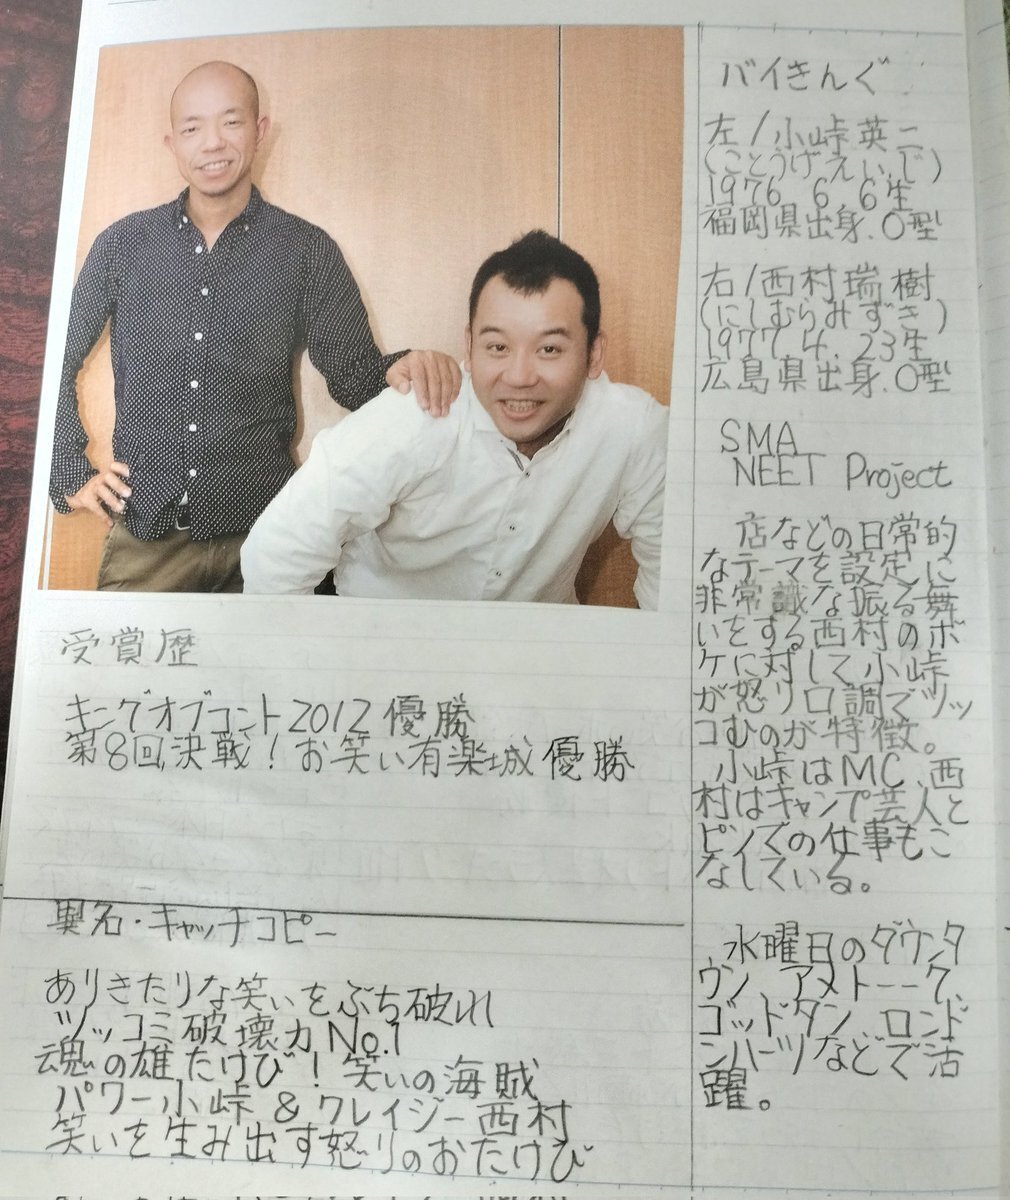 バイきんぐ
左/小峠英二
(ことうげえいじ)
1976 6 6生
福岡県出身、O型
右/西村瑞樹
(にしむらみずき)
1977 4. 23生
広島県出身、O型
SMA
NEET Project
店などの日常的
なテーマを設定に
非常識な振る舞
いをする西村のボ
ケに対して小峠
が怒り口調でツッ
コむのが特徴。
小峠はMC、西
村はキャンプ芸人と
ピンでの仕事もこ
なしている。
水曜日のダウンタ
ウン、アメトーーク、
ゴッドタン、ロンド
ンハーツなどで活
躍。
受賞歴
キングオブコント2012優勝
第8回決戦!お笑い有楽城優勝
異名・キャッチコピー
ありきたりな笑いをぶち破れ
ツッコミ破壊力No.1
魂の雄たけび!笑いの海賊
パワー小峠&クレイジー西村
笑いを生み出す怒りのおたけび